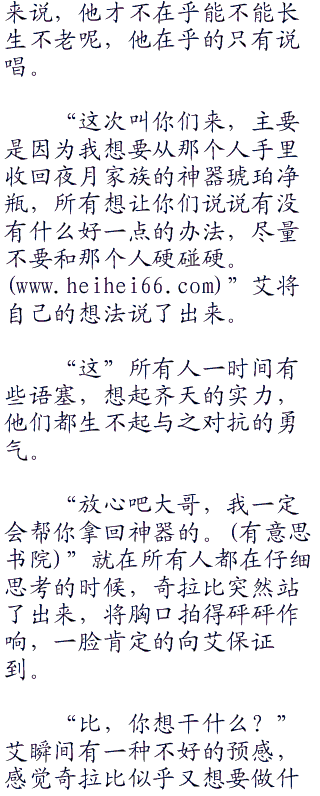 来说，他才不在乎能不能长
生不老呢，他在乎的只有说
唱。
“这次叫你们来，主要
是因为我想要从那个人手里
收回夜月家族的神器琥珀净
瓶，所有想让你们说说有没
有什么好一点的办法，尽量
不要和那个人硬碰硬。
(www.heihei66.com)”艾将
自己的想法说了出来。
“这”所有人一时间有
些语塞，想起齐天的实力，
他们都生不起与之对抗的勇
气。
“放心吧大哥，我一定
会帮你拿回神器的。(有意思
书院)”就在所有人都在仔细
思考的时候，奇拉比突然站
了出来，将胸口拍得砰砰作
响，一脸肯定的向艾保证
到。
“比，你想干什么？”
艾瞬间有一种不好的预感，
感觉奇拉比似乎又想要做什